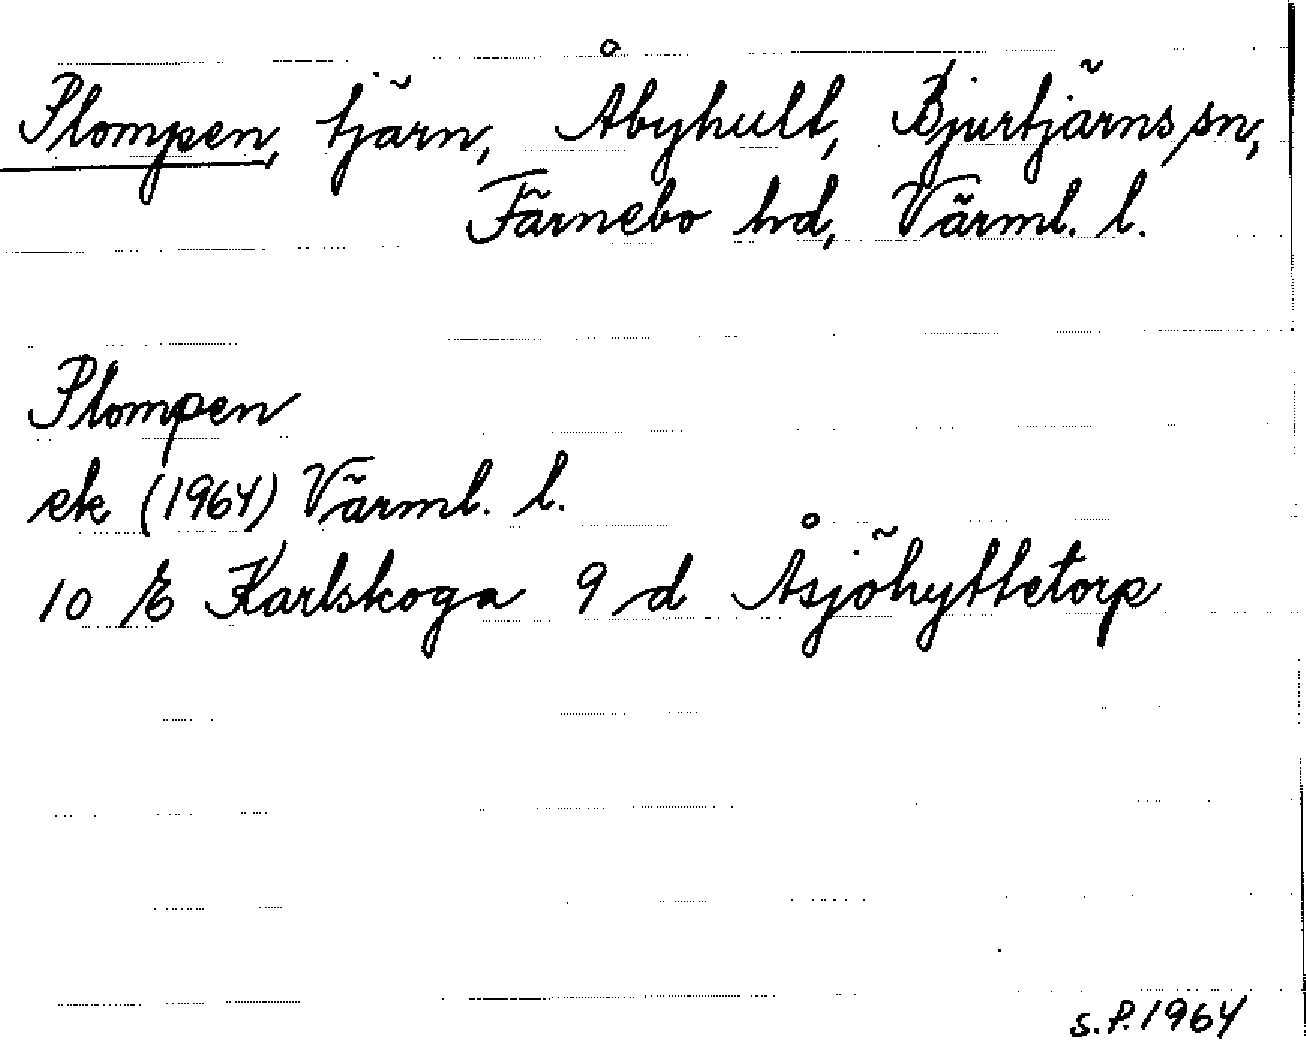 Plompen, tjärn, Åbyhult, Bjurtjärns sn,
Färnebo hd, Värml. l.
Plompen
ek (1964) Värml. l.
10 E Karlskoga 9 d Åsjöhyttetorp
s.P. 1964